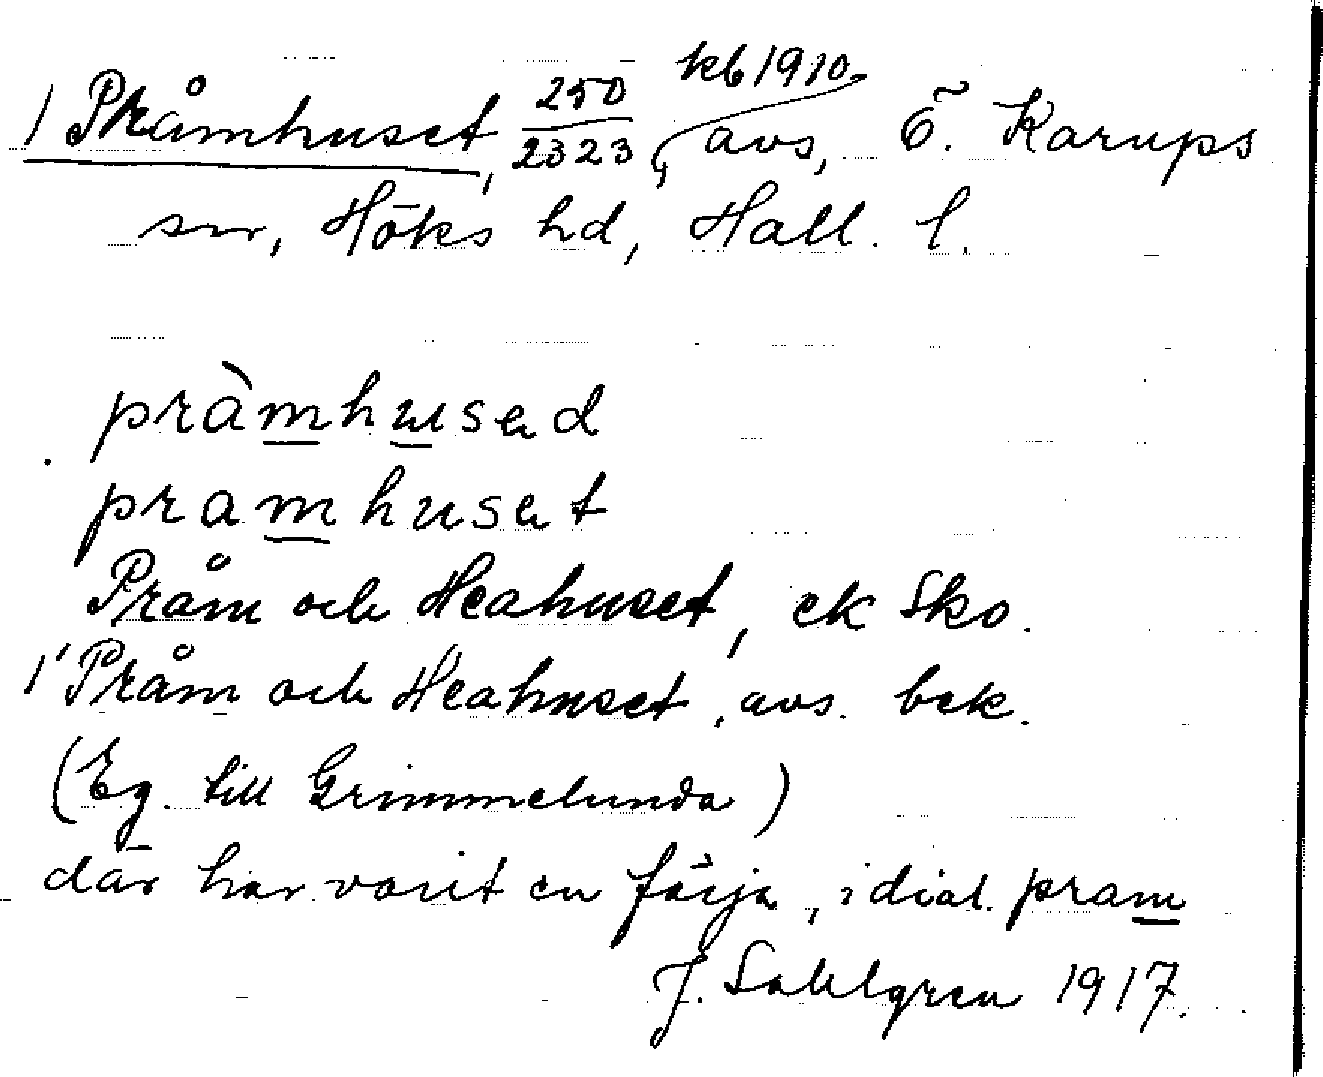 1 Pråmhuset, 250/2323, kb 1910, avs, Ö. Karups
sn, Höks hd, Hall. l.
pràmhusəd
pramhusət
Pråm och Heahuset, ek Sko.
1' Pråm och Heahuset, avs. bek.
(Eg. till Grimmelunda)
där har varit en färja, i dial. pram
J. Sahlgren 1917.